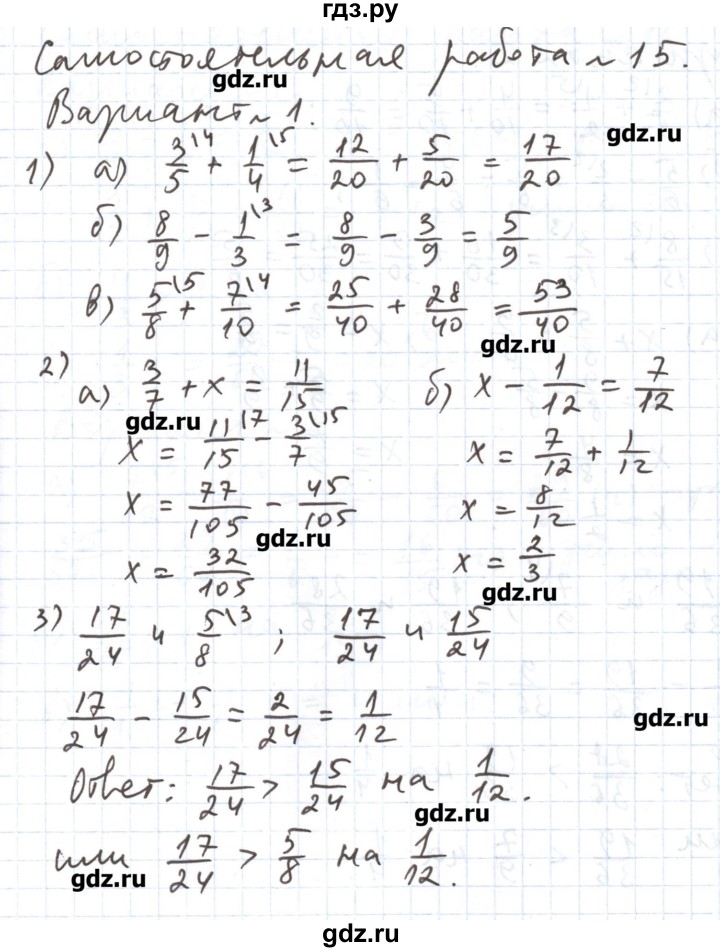 гдз.ру
Самостоятельная работа № 15.
gdz.ru
Вариант № 1.
gdz.ru
1) а) 3/5 \4 + 1/4 \5 = 12/20 + 5/20 = 17/20
б) 8/9 - 1/3 \3 = 8/9 - 3/9 = 5/9
в) 5/8 \5 + 7/10 \4 = 25/40 + 28/40 = 53/40
gdz.ru
2) а) 3/7 + x = 11/15 б) x - 1/12 = 7/12
gdz.ru
x = 11/15 \7 - 3/7 \15 x = 7/12 + 1/12
x = 77/105 - 45/105 x = 8/12
gdz.ru
x = 32/105 x = 2/3
gdz.ru
3) 17/24 и 5/8 \3 ; 17/24 и 15/24
17/24 - 15/24 = 2/24 = 1/12
gdz.ru
Ответ: 17/24 > 15/24 на 1/12.
gdz.ru
или 17/24 > 5/8 на 1/12.
gdz.ru
gdz.ru